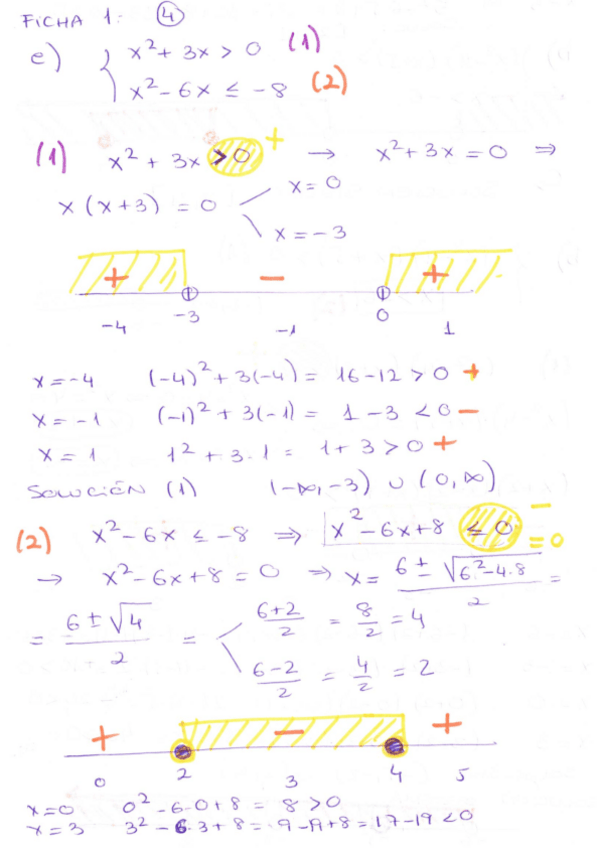 FICHA 1: ④
e) { x² + 3x > 0 (1)
x² - 6x ≤ -8 (2)
(1) x² + 3x > 0 + → x² + 3x = 0 ⇒
x (x+3) = 0 x = 0
x = -3
+ - +
-4 -3 -1 0 1
x = -4 (-4)² + 3(-4) = 16 - 12 > 0 +
x = -1 (-1)² + 3(-1) = 1 - 3 < 0 -
x = 1 1² + 3·1 = 1 + 3 > 0 +
SOLUCIÓN (1) (-∞, -3) ∪ (0, ∞)
(2) x² - 6x ≤ -8 ⇒ x² - 6x + 8 ≤ 0 - = 0
→ x² - 6x + 8 = 0 ⇒ x = (6 ± √(6² - 4·8))/2 =
= (6 ± √4)/2 = (6+2)/2 = 8/2 = 4
(6-2)/2 = 4/2 = 2
+ - +
0 2 3 4 5
x = 0 0² - 6·0 + 8 = 8 > 0
x = 3 3² - 6·3 + 8 = 9 - 19 + 8 = 17 - 19 < 0